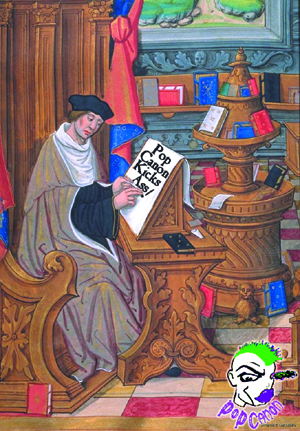 Pop
Canon
Kicks
Ass!
Pop Canon